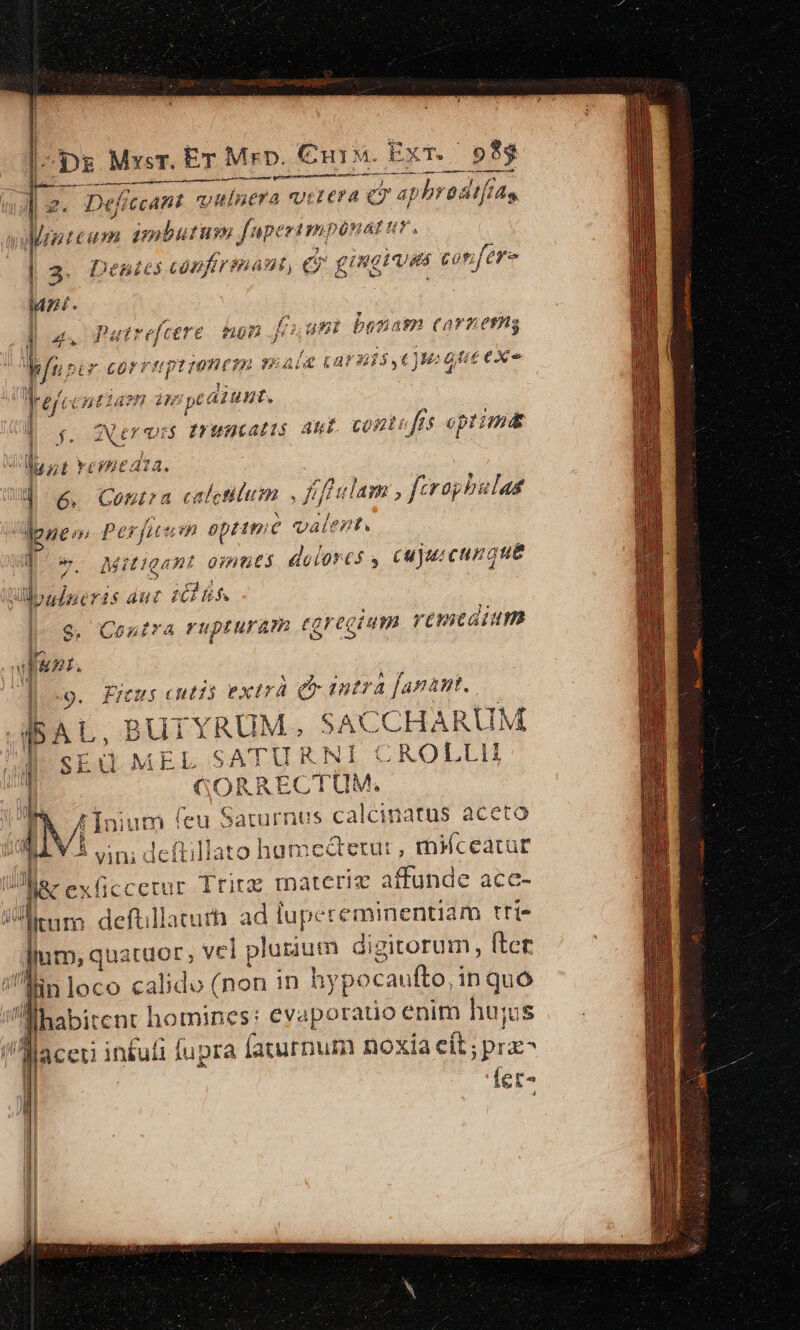 De Myst. Et Med. Chim. Ext. 985
2. Deficcant vulnera vetera & aphrodifias,
linteum imbutum fuperimponatur.
3. Dentes confirmant, & gingivas confer-
4. Putrefcere non finunt bonam carnem,
fuper corruptionem mala carnis, ejusque ex-
crefcentiam impediunt.
5. Nervis truncatis aut contufis optima
funt remedia.
6. Contra caletulum, fiftulam, fcrophulas
Perficum optime valent.
7. Mitigant omnes dolores, cujuscunque
vulneris aut ictus.
8. Contra rupturam egregium remedium
funt.
9. Ficus cutis extrà & intrà fanant.
SAL, BUTYRUM, SACCHARUM
SEU MEL SATURNI CROLLII
CORRECTUM.
MInium feu Saturnus calcinatus aceto
vini deftillato humectetur, mifceatur
& exficcetur Tritæ materiæ affunde ace-
tum deftillatum ad fupereminentiam tri-
um, quatuor, vel plurium digitorum, ftet
in loco calido (non in hypocaufto, in quo
habitent homines: evaporatio enim hujus
aceti infufi fupra faturnum noxia eft; præ-
fer-